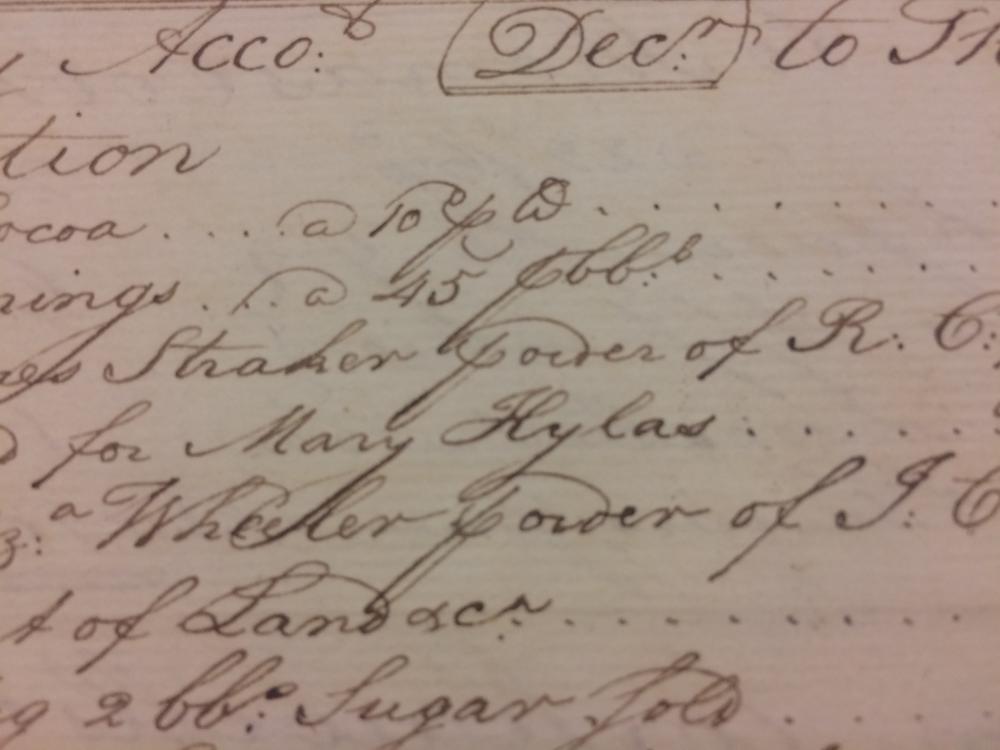 Acco:ᵗ (Dec:ʳ) to
tion
ocoa .... a 10ᵈ ⅌ lb ........
rings ... a 45 ⅌ bb:ˢ ......
es Straker ⅌ order of R: C:
d for Mary Hylas ......
z:ᵃ Wheeler ⅌ order of J: C
t of Land &c:ᵃ ........
g 2 bb:ˢ Sugar Sold ....